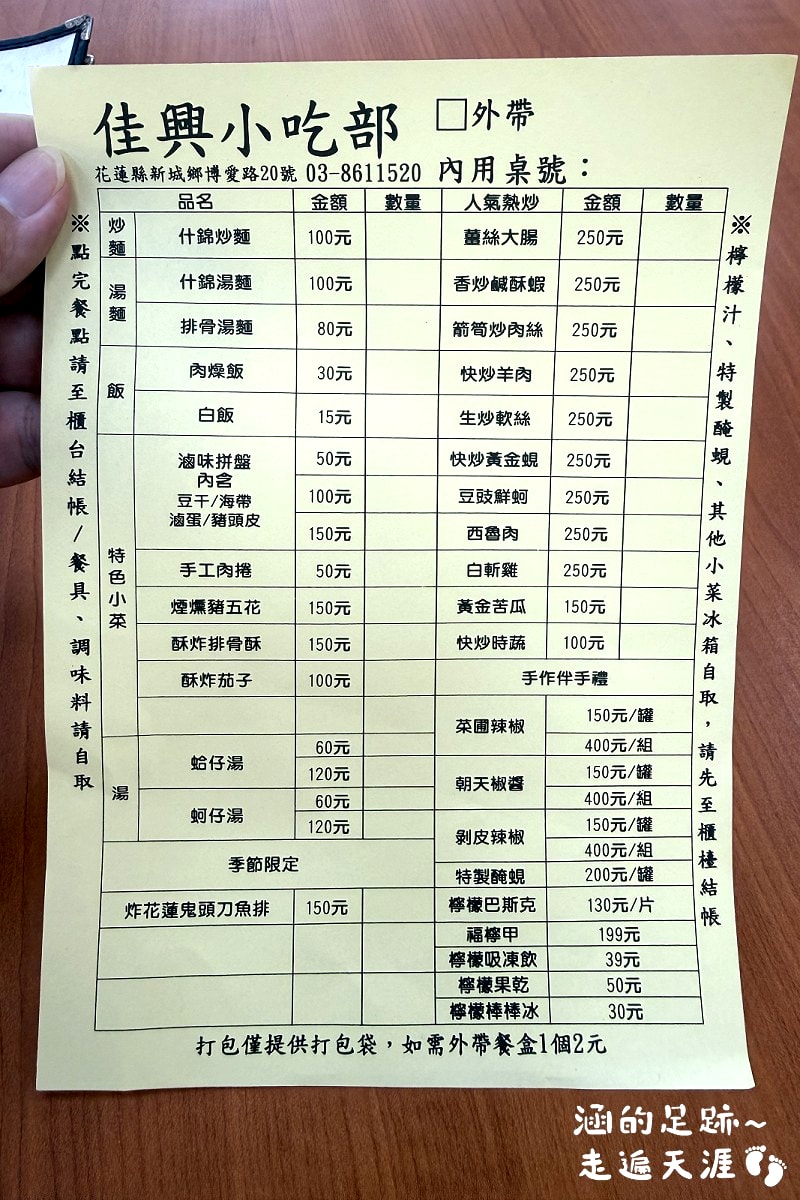 佳興小吃部 □外帶
花蓮縣新城鄉博愛路20號 03-8611520 內用桌號：
品名 金額 數量 人氣熱炒 金額 數量
炒麵 什錦炒麵 100元 薑絲大腸 250元
湯麵 什錦湯麵 100元 香炒鹹酥蝦 250元
排骨湯麵 80元 箭筍炒肉絲 250元
飯 肉燥飯 30元 快炒羊肉 250元
白飯 15元 生炒軟絲 250元
特色小菜 滷味拼盤 50元 快炒黃金蜆 250元
內含
豆干/海帶 100元 豆豉鮮蚵 250元
滷蛋/豬頭皮
150元 西魯肉 250元
手工肉捲 50元 白斬雞 250元
煙燻豬五花 150元 黃金苦瓜 150元
酥炸排骨酥 150元 快炒時蔬 100元
酥炸茄子 100元 手作伴手禮
菜圃辣椒 150元/罐
400元/組
湯 蛤仔湯 60元 朝天椒醬 150元/罐
120元 400元/組
蚵仔湯 60元 剝皮辣椒 150元/罐
120元 400元/組
季節限定 特製醃蜆 200元/罐
炸花蓮鬼頭刀魚排 150元 檸檬巴斯克 130元/片
福檸甲 199元
檸檬吸凍飲 39元
檸檬果乾 50元
檸檬棒棒冰 30元
打包僅提供打包袋，如需外帶餐盒1個2元
※點完餐點請至櫃台結帳/餐具、調味料請自取
※檸檬汁、特製醃蜆、其他小菜冰箱自取，請先至櫃檯結帳
涵的足跡~
走遍天涯